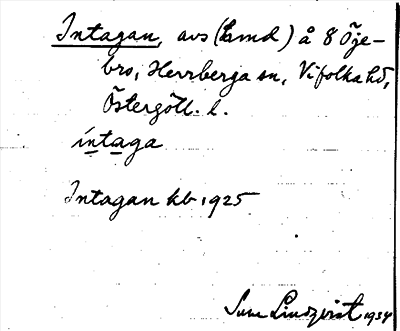 Intagan, avs (Lmd) å 8 Öje-
bro, Herrberga sn, Vifolka hd,
Östergötl. l.
íntaga
Intagan kb 1925
Sune Lindqvist 1934